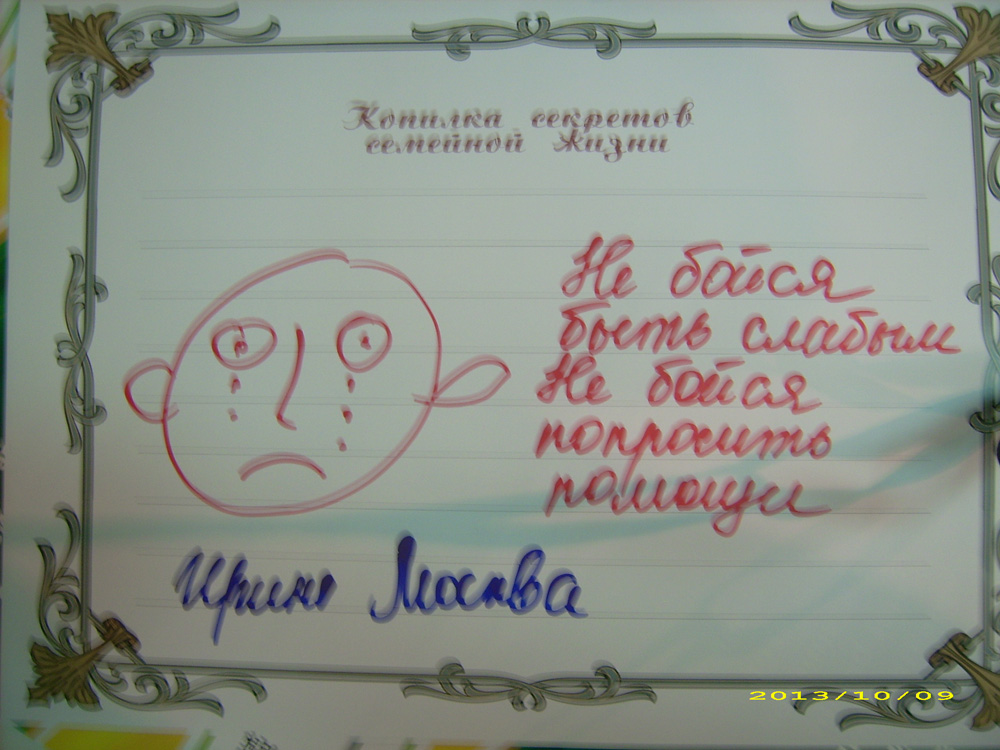 Копилка секретов
семейной жизни
Не бойся
быть слабым
Не бойся
попросить
помощи
Ирина Москва
2013/10/09